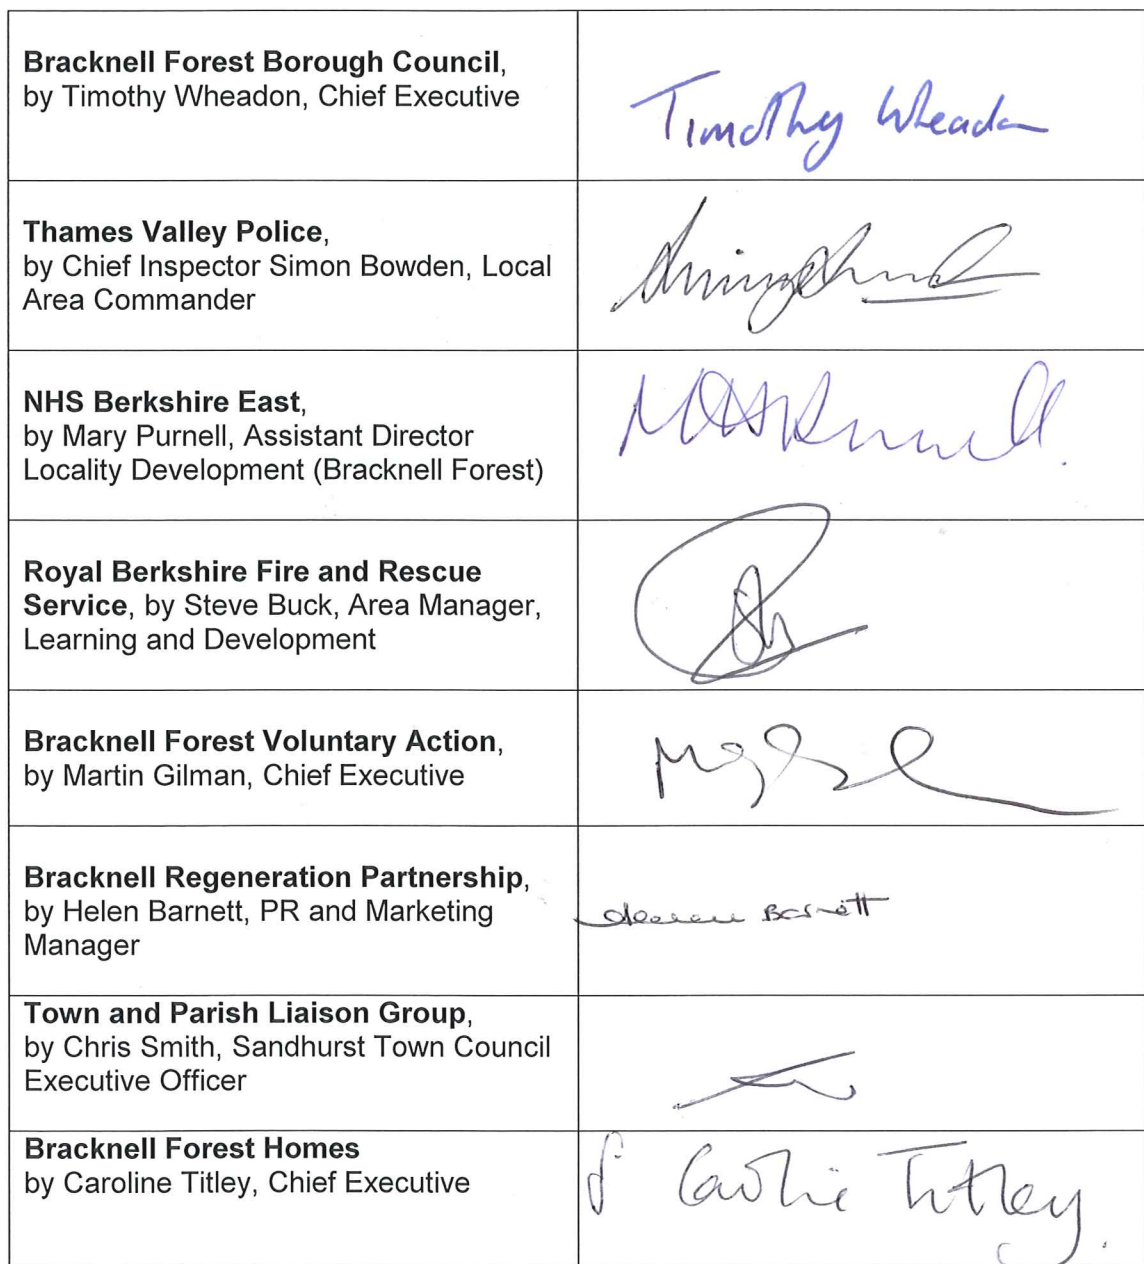 Bracknell Forest Borough Council,
by Timothy Wheadon, Chief Executive
Timothy Wheadon
Thames Valley Police,
by Chief Inspector Simon Bowden, Local
Area Commander
NHS Berkshire East,
by Mary Purnell, Assistant Director
Locality Development (Bracknell Forest)
Royal Berkshire Fire and Rescue
Service, by Steve Buck, Area Manager,
Learning and Development
Bracknell Forest Voluntary Action,
by Martin Gilman, Chief Executive
Bracknell Regeneration Partnership,
by Helen Barnett, PR and Marketing
Manager
Barnett
Town and Parish Liaison Group,
by Chris Smith, Sandhurst Town Council
Executive Officer
Bracknell Forest Homes
by Caroline Titley, Chief Executive
Titley